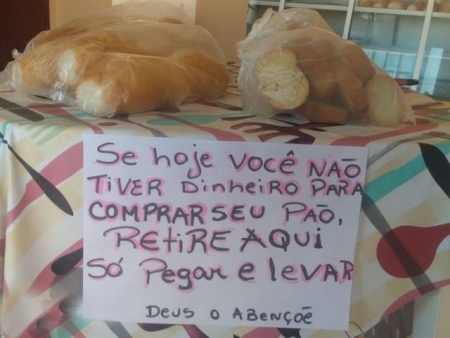 Se hoje você NÃO
TIVER DinHEiRO PARA
COMPRAR SEU PÃO,
RETIRE AQUI
Só Pegar e levar
DEUS O ABENÇÕE